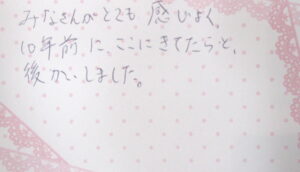 みなさんがとても感じよく、
10年前に、ここにきてたらと、
後かいしました。